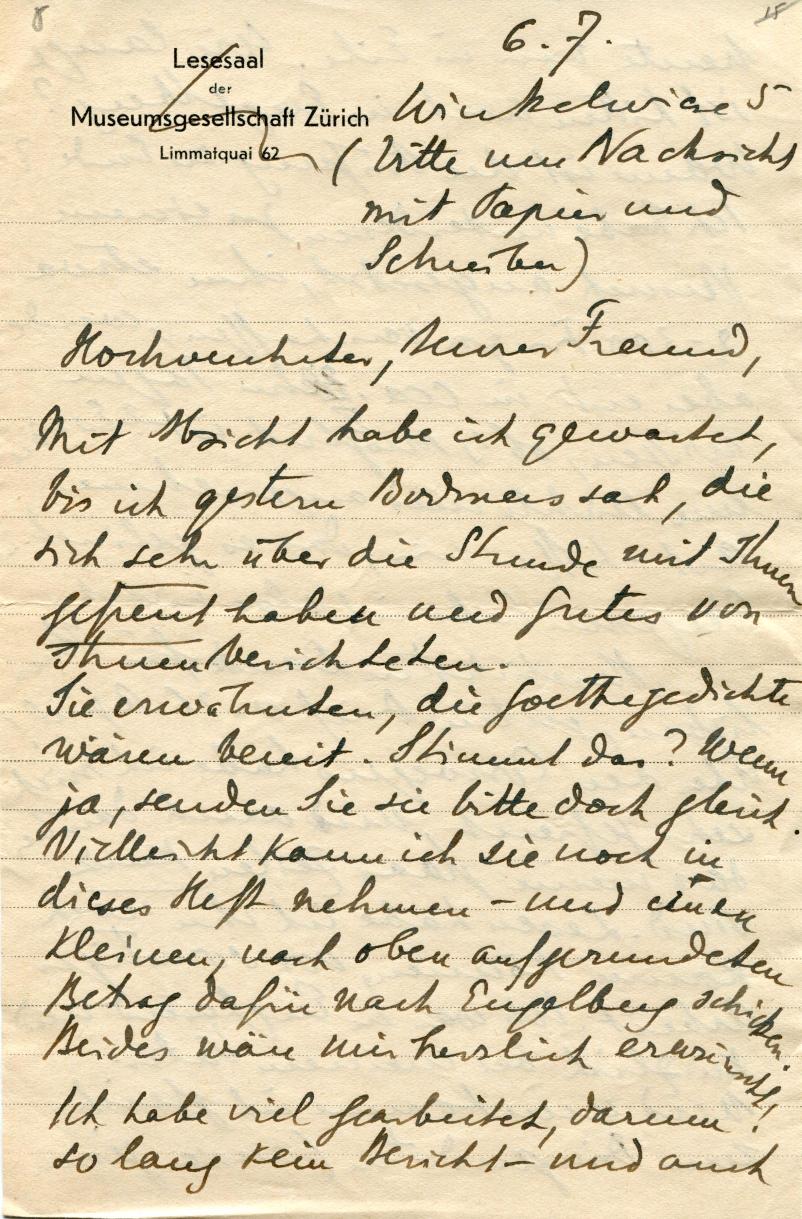 8
18
Lesesaal
der
Museumsgesellschaft Zürich
Limmatquai 62
6. 7.
Winkelwiese 5
(bitte um Nachricht
mit Papier und
Schreiber)
Hochverehrter, teurer Freund,
Mit Absicht habe ich gewartet,
bis ich gestern Bodmers sah, die
sich sehr über die Stunde mit Ihnen
gefreut haben und Gutes von
Ihnen berichteten.
Sie erwähnten, die Goethegedichte
wären bereit. Stimmt das? Wenn
ja, senden Sie sie bitte doch gleich.
Vielleicht kann ich sie noch in
dieses Heft nehmen - und einen
kleinen, nach oben aufgerundeten
Betrag dafür nach Engelberg schicken.
Beides wär mir herzlich erwünscht!
Ich habe viel gearbeitet, darum
so lang kein Bericht - und auch